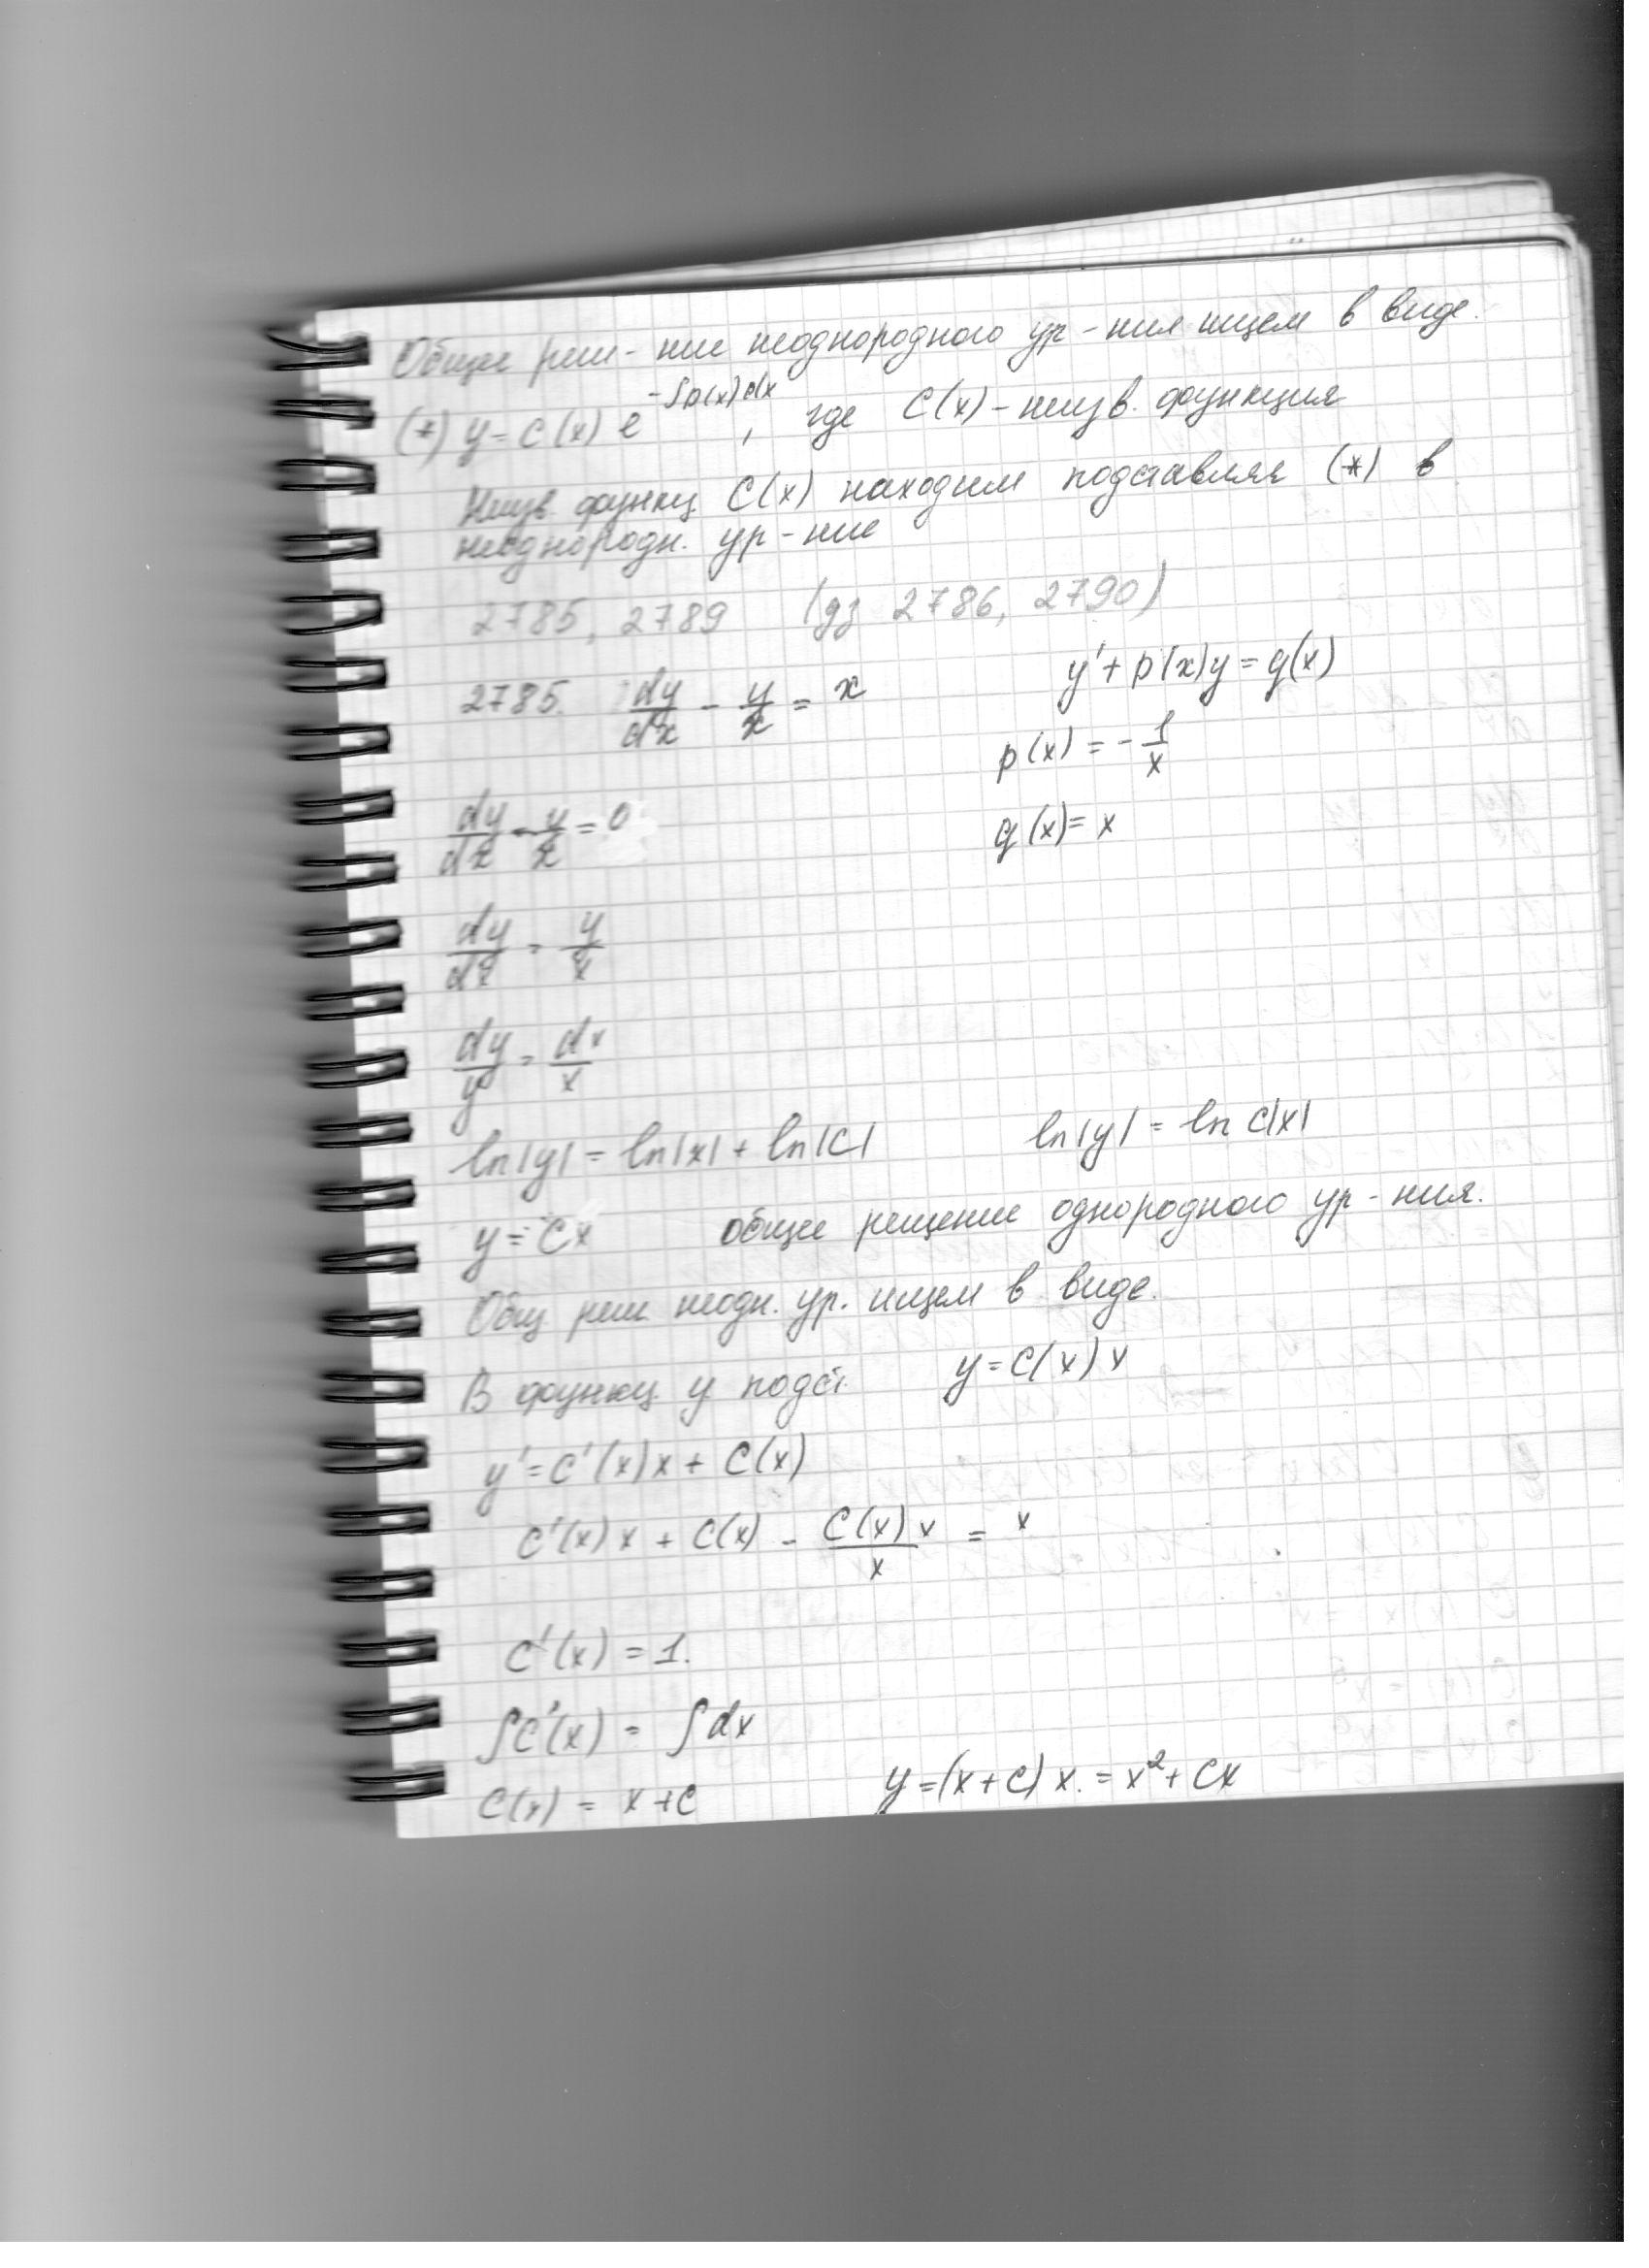 Общее реш-ние неоднородного ур-ния ищем в виде.
(*) y = C(x) e^{-∫p(x)dx}, где C(x) - неизв. функция
Неизв. функц C(x) находим подставляя (*) в
неоднородн. ур-ние
2785, 2789 (дз 2786, 2790)
2785. dy/dx - y/x = x y' + p(x)y = g(x)
p(x) = - 1/x
dy/dx - y/x = 0 g(x) = x
dy/dx = y/x
dy/y = dx/x
ln|y| = ln|x| + ln|C| ln|y| = ln C|x|
y = Cx общее решение однородного ур-ния.
Общ реш неодн. ур. ищем в виде.
В функц. y подст. y = C(x) x
y' = C'(x) x + C(x)
C'(x) x + C(x) - C(x) x/x = x
C'(x) = 1.
∫C'(x) = ∫dx
C(x) = x + C y = (x + C) x. = x² + Cx